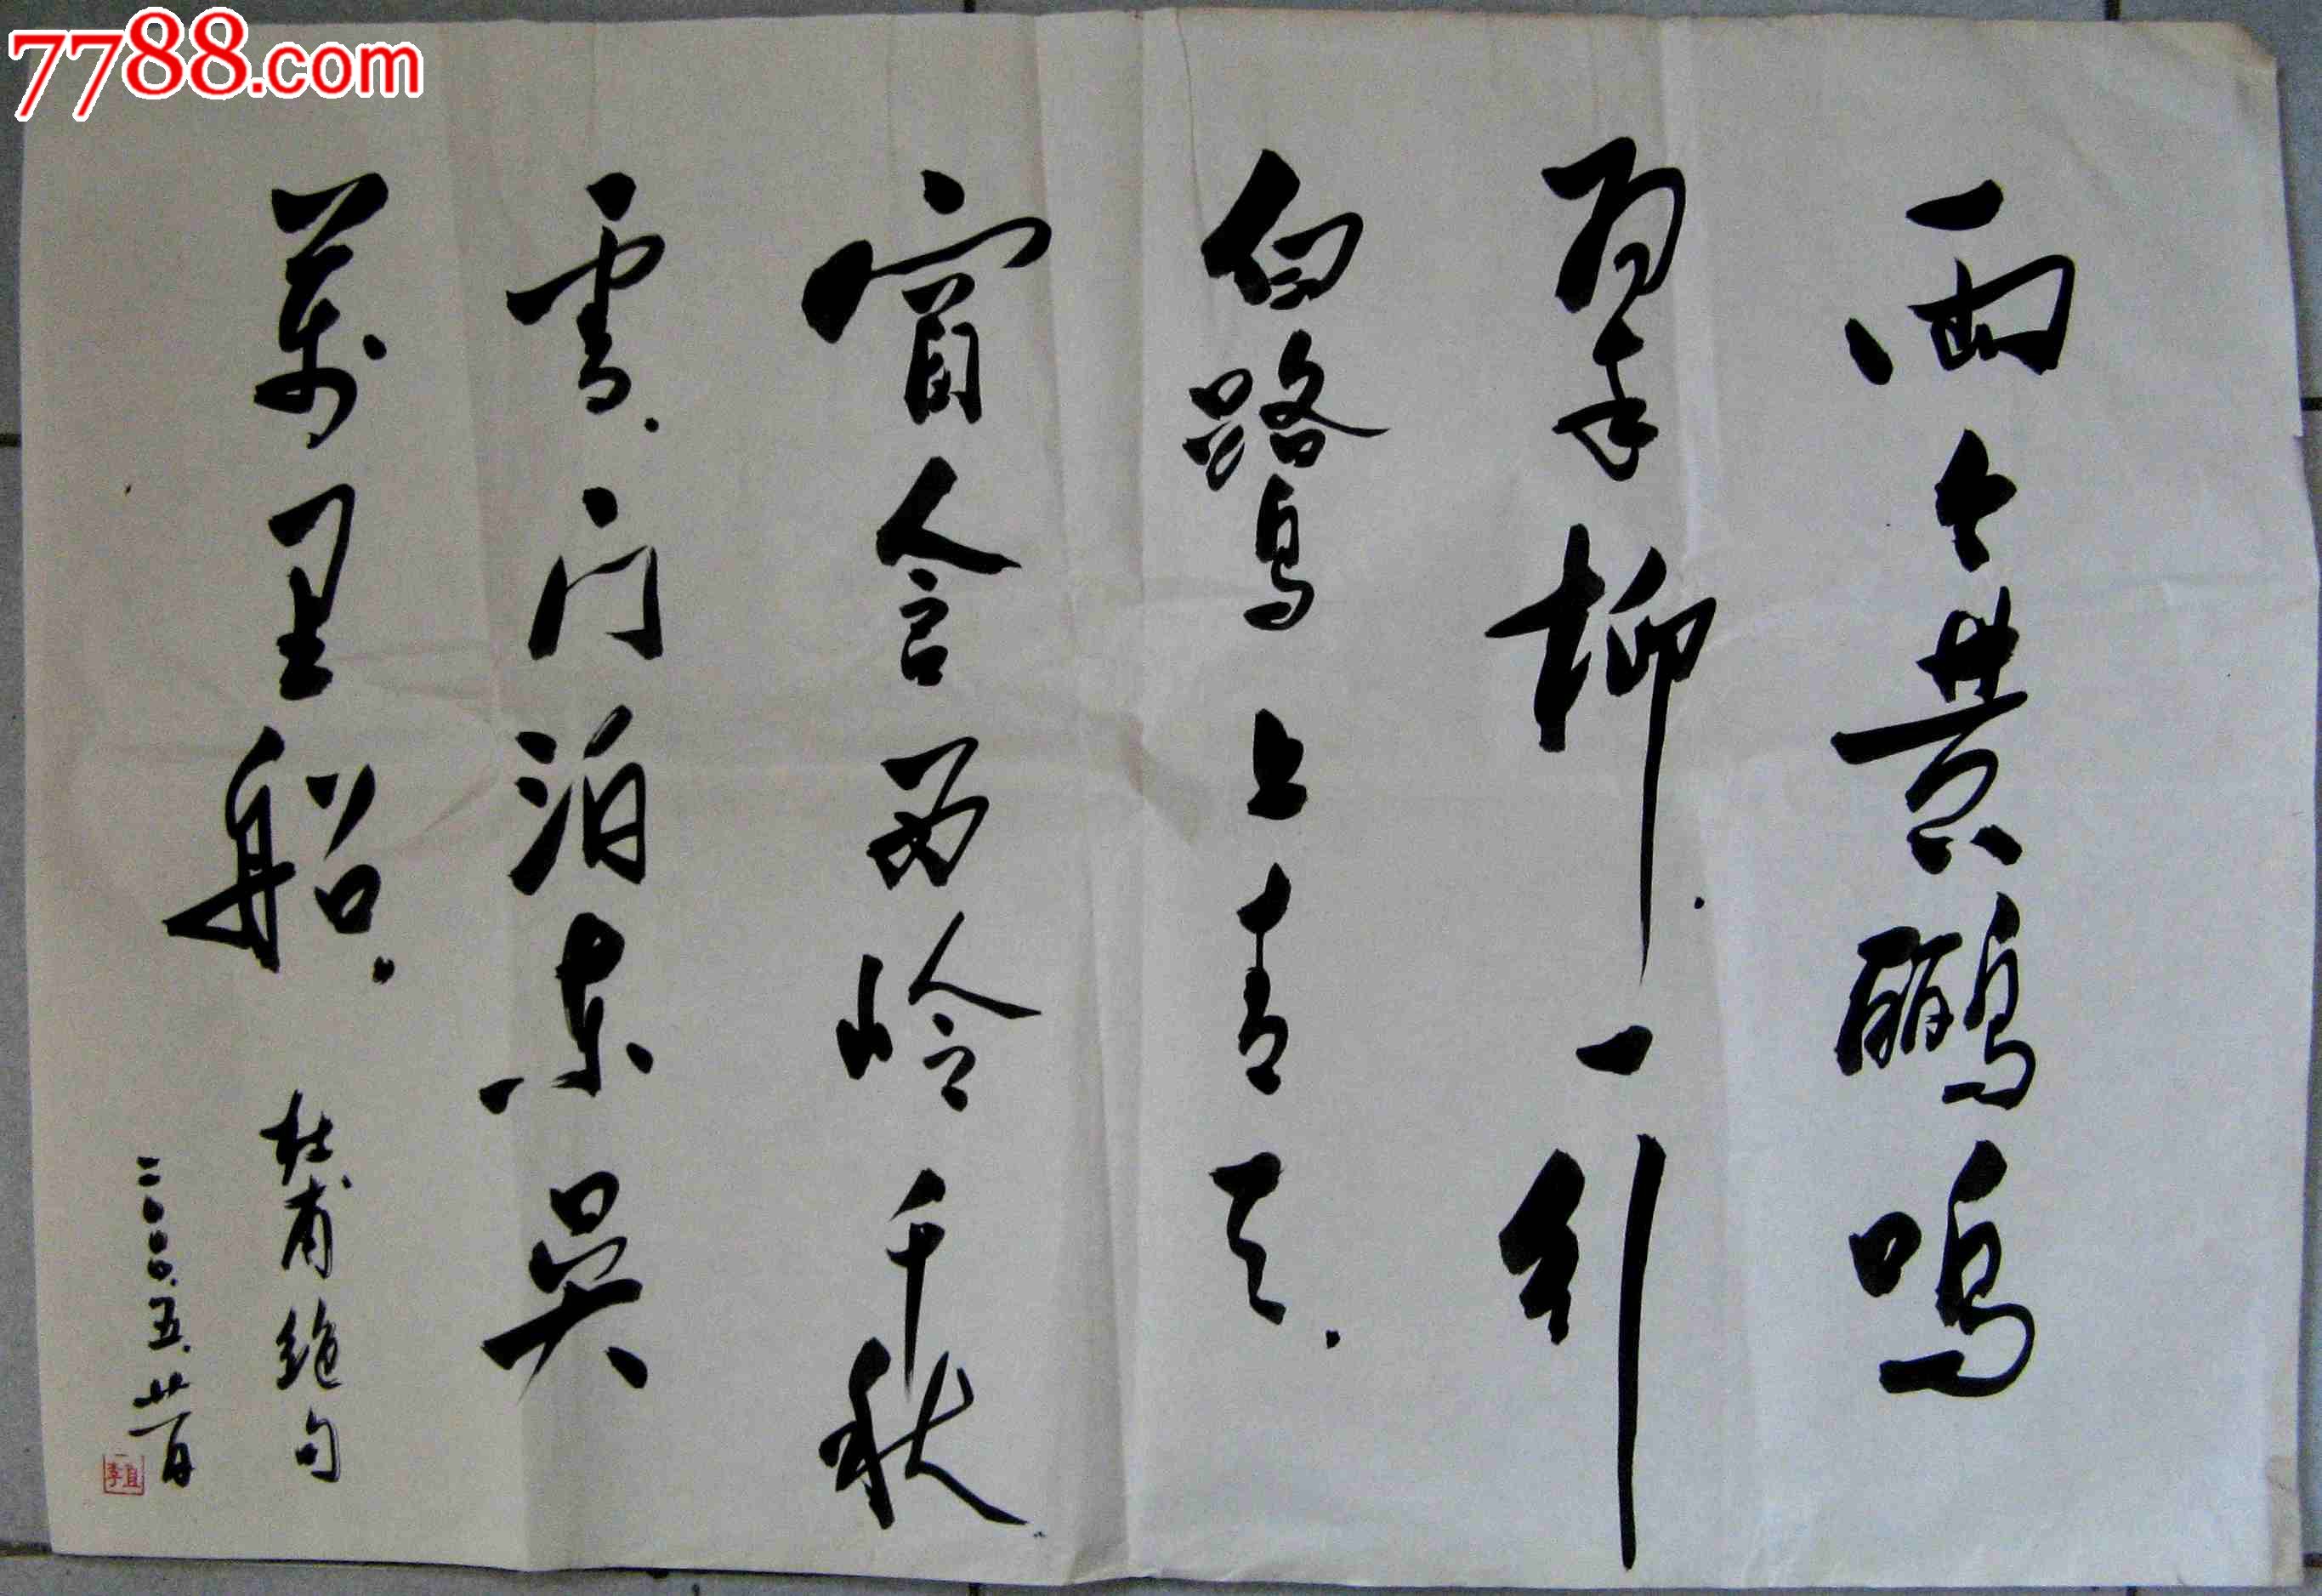 两个黄鹂鸣
翠柳.一行
白鹭上青天.
窗含西岭千秋
雪.门泊东吴
萬里船.
杜甫绝句
二〇〇〇.五.廿一日
7788.com